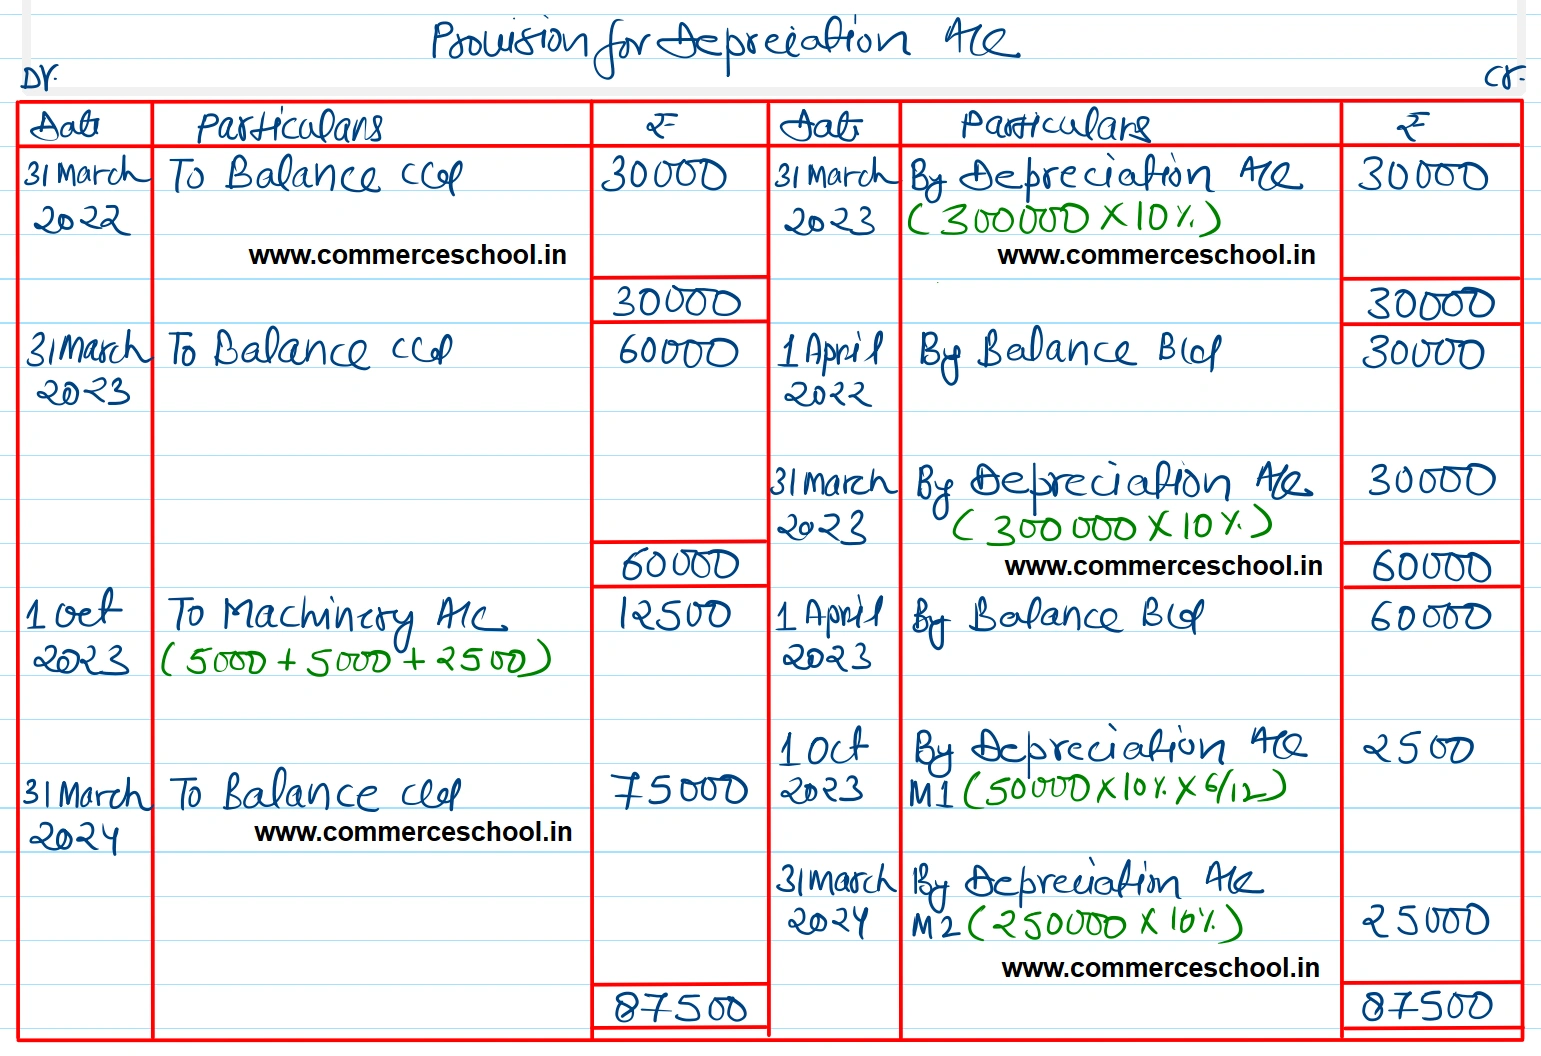 Provision for Depreciation A/c
Dr. Cr.
Date Particulars ₹ Date Particulars ₹
31 March To Balance c/d 30000 31 March By Depreciation A/c 30000
2022 2023 (300000 × 10%)
www.commerceschool.in www.commerceschool.in
30000 30000
31 March To Balance c/d 60000 1 April By Balance B/d 30000
2023 2022
31 March By Depreciation A/c 30000
2023 (300000 × 10%)
60000 www.commerceschool.in 60000
1 Oct To Machinery A/c 12500 1 April By Balance B/d 60000
2023 (5000 + 5000 + 2500) 2023
1 Oct By Depreciation A/c 2500
31 March To Balance c/d 75000 2023 M1 (50000 × 10% × 6/12)
2024 www.commerceschool.in
31 March By Depreciation A/c
2024 M2 (250000 × 10%) 25000
www.commerceschool.in
87500 87500